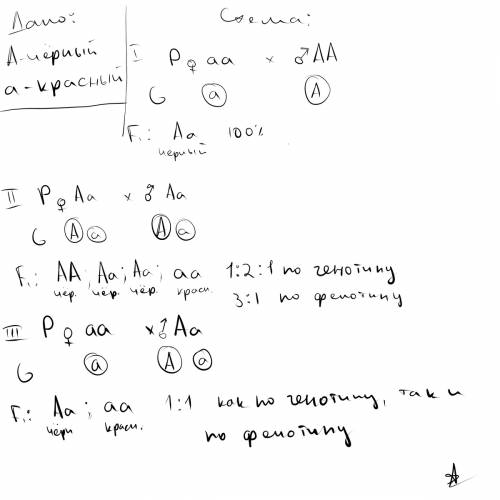 Дано:
А-чёрный
а-красный
Схема:
I P ♀ aa × ♂ AA
G a A
F₁: Aa 100%
чёрный
II P ♀ Aa × ♂ Aa
G A a A a
F₁: AA; Aa; Aa; aa 1:2:1 по генотипу
чёр. чёр. чёр. красн. 3:1 по фенотипу
III P ♀ aa × ♂ Aa
G a A a
F₁: Aa; aa 1:1 как по генотипу, так и
чёрн красн. по фенотипу